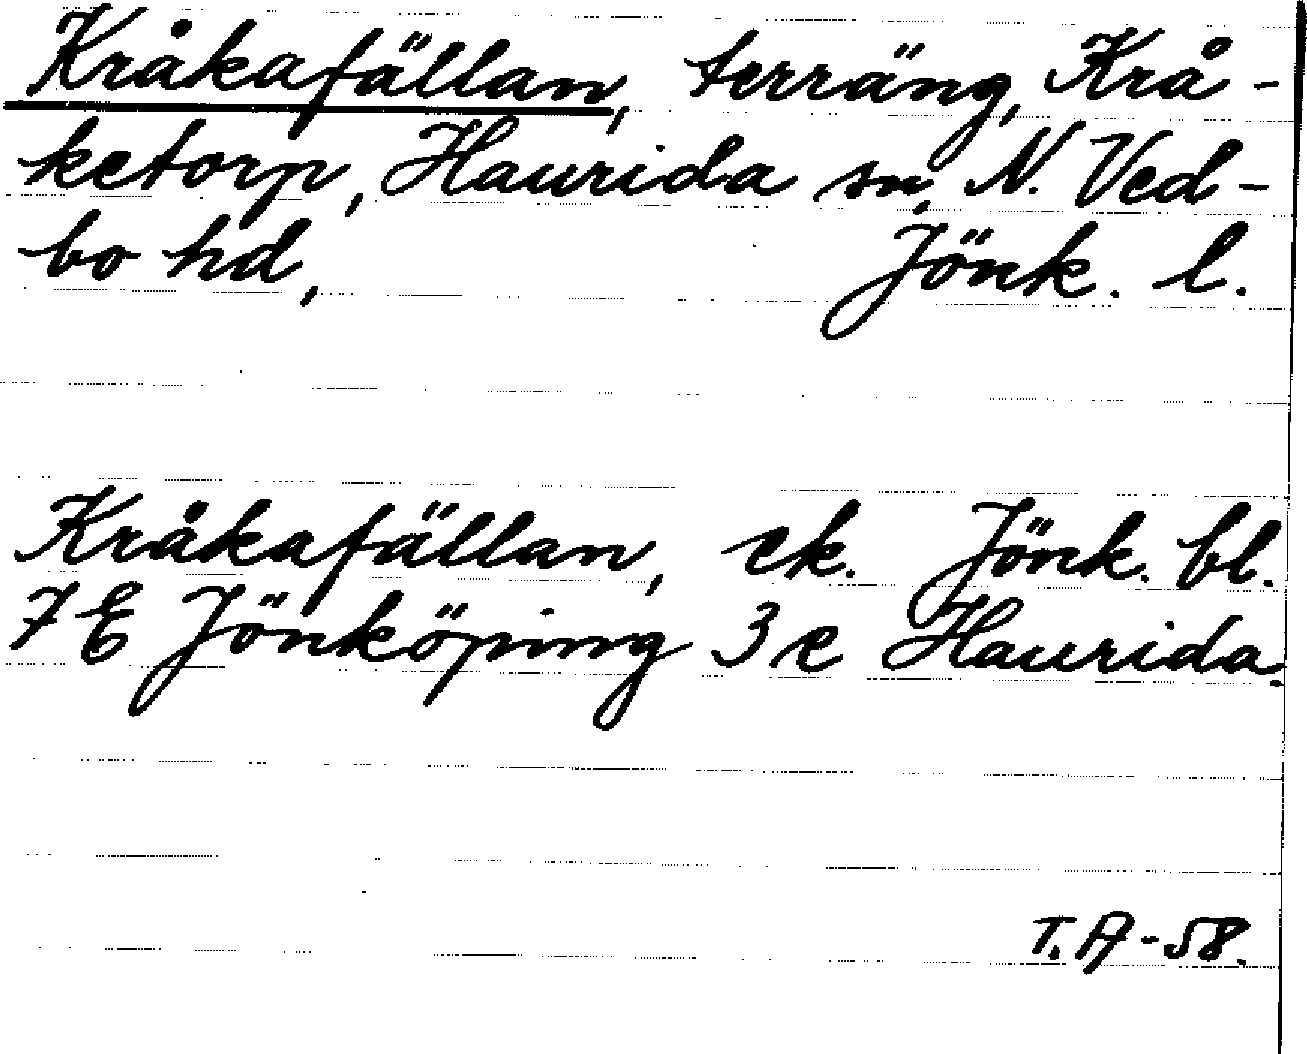 Kråkafällan, terräng, Krå-
ketorp, Haurida sn, N. Ved-
bo hd, Jönk. l.
Kråkafällan, ek. Jönk. bl.
7 E Jönköping 3 e Haurida.
T. A -58.